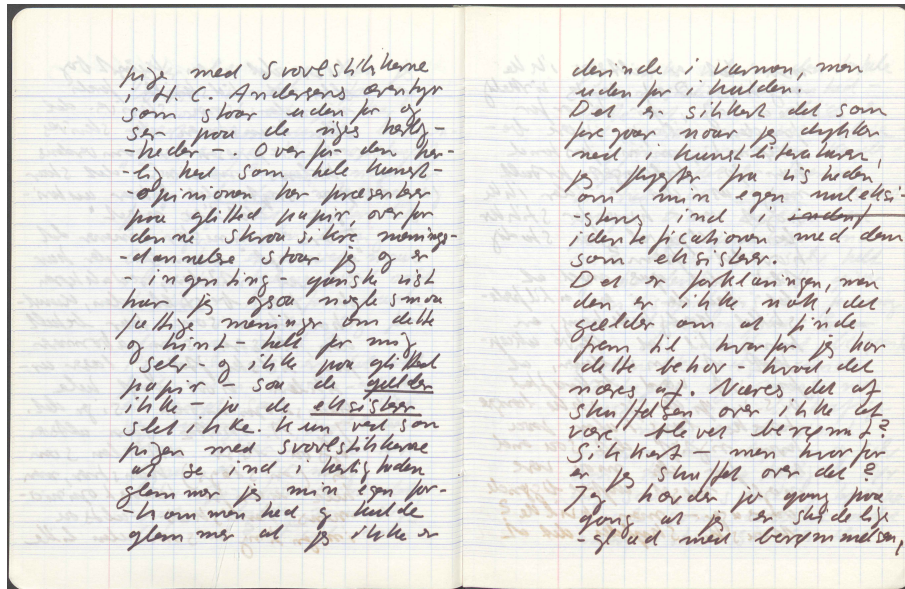 pige med svovlstikkerne
i H. C. Andersens æventyr
som staar uden for og
ser paa de riges herlig-
-heder -. Over for den her-
lighed som hele kunst-
-opinionen her præsenterer
paa glittet papir, overfor
denne skraasikre menings-
-dannelse staar jeg og er
- ingenting - ganske vist
har jeg ogsaa nogle smaa
fattige meninger om dette
og hint - helt for mig
selv - og ikke paa glittet
papir - saa de gælder
ikke - jo de eksisterer
slet ikke. Kun ved som
pigen med svovlstikkerne
at se ind i herligheden
glemmer jeg min egen for-
-kommenhed og kulde
glemmer at jeg ikke er
derinde i varmen, men
uden for i kulden.
Det er sikkert det som
foregaar naar jeg dykker
ned i kunstliteraturen,
jeg flygter fra visheden
om min egen nuleksi-
-stens ind i
identificationen med dem
som eksisterer.
Det er forklaringen, men
den er ikke nok, det
gælder om at finde
frem til hvorfor jeg har
dette behov - hvad det
næres af. Næres det af
skuffelsen over ikke at
være blevet berømt?
Sikkert - men hvorfor
er jeg skuffet over det?
Jeg hævder jo gang paa
gang at jeg er
-glad med berømmelsen,